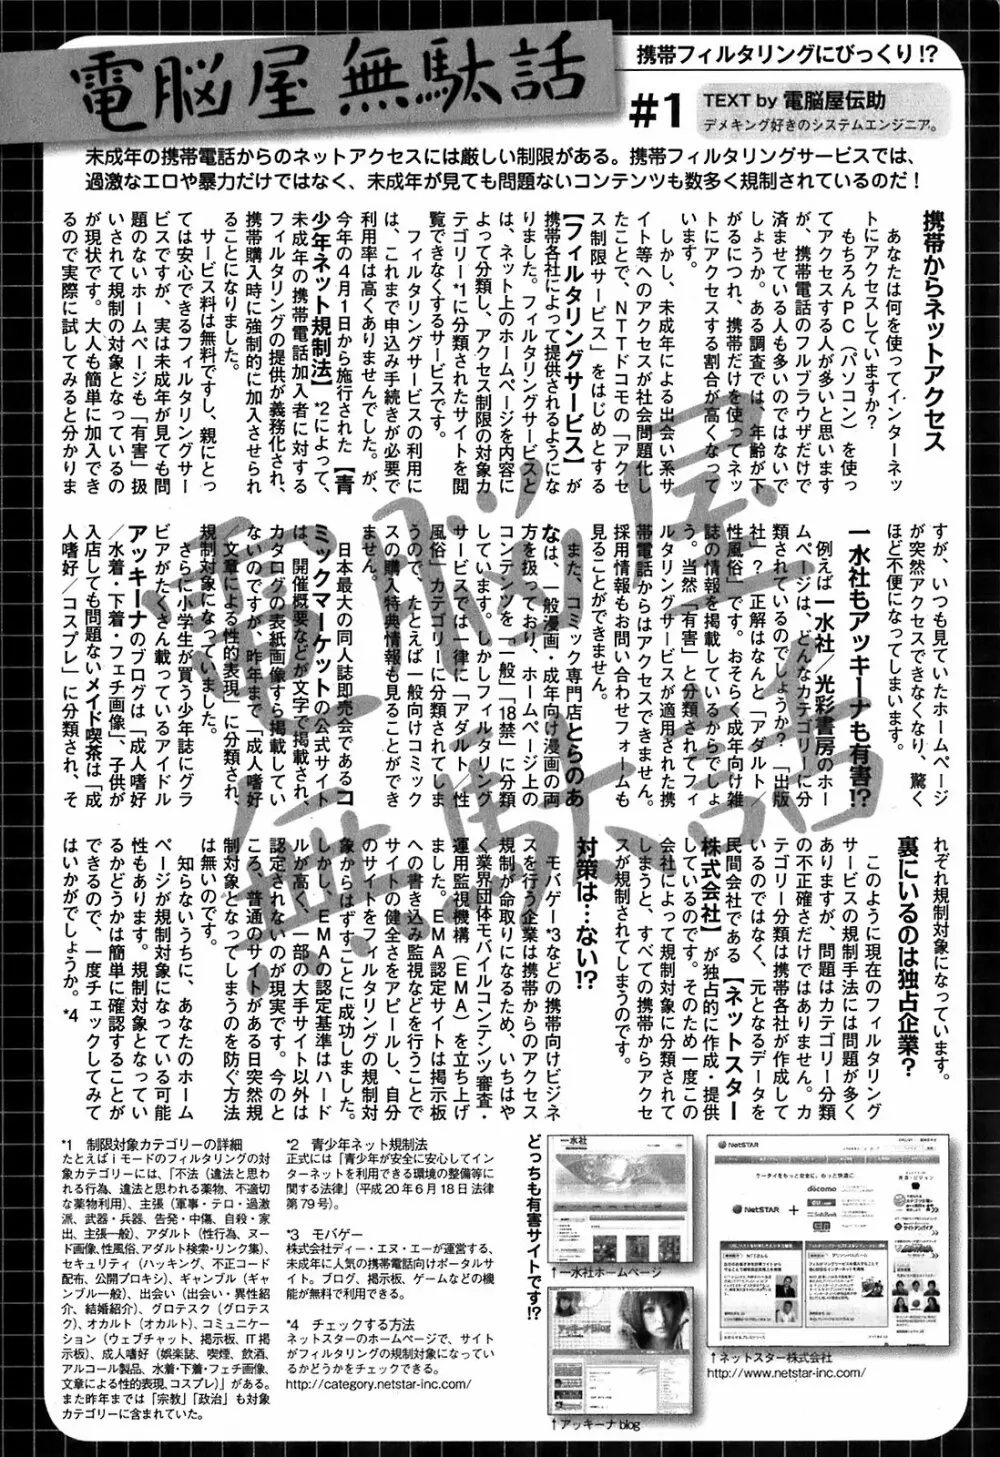 電脳屋無駄話
携帯フィルタリングにびっくり!?
#1
TEXT by 電脳屋伝助
デメキング好きのシステムエンジニア。
未成年の携帯電話からのネットアクセスには厳しい制限がある。携帯フィルタリングサービスでは、
過激なエロや暴力だけではなく、未成年が見ても問題ないコンテンツも数多く規制されているのだ!
携帯からネットアクセス
あなたは何を使ってインターネッ
トにアクセスしていますか?
もちろんPC(パソコン)を使っ
てアクセスする人が多いと思います
が、携帯電話のフルブラウザだけで
済ませている人も多いのではないで
しょうか。ある調査では、年齢が下
がるにつれ、携帯だけを使ってネッ
トにアクセスする割合が高くなって
います。
しかし、未成年による出会い系サ
イト等へのアクセスが社会問題化し
たことで、NTTドコモの「アクセ
ス制限サービス」をはじめとする
【フィルタリングサービス】が
携帯各社によって提供されるようにな
りました。フィルタリングサービスと
は、ネット上のホームページを内容に
よって分類し、アクセス制限の対象カ
テゴリー*1に分類されたサイトを閲
覧できなくするサービスです。
フィルタリングサービスの利用に
は、これまで申込み手続きが必要で
利用率は高くありませんでした。が、
今年の4月1日から施行された【青
少年ネット規制法】*2によって、
未成年の携帯電話加入者に対する
フィルタリングの提供が義務化され、
携帯購入時に強制的に加入させられ
ることになりました。
サービス料は無料ですし、親にとっ
ては安心できるフィルタリングサー
ビスですが、実は未成年が見ても問
題のないホームページも「有害」扱
いされて規制の対象となっているの
が現状です。大人も簡単に加入でき
るので実際に試してみると分かりま
すが、いつも見ていたホームページ
が突然アクセスできなくなり、驚く
ほど不便になってしまいます。
一水社もアッキーナも有害!?
例えば一水社/光彩書房のホー
ムページは、どんなカテゴリーに分
類されているのでしょうか?「出版
社」?正解はなんと「アダルト/
性風俗」です。おそらく成年向け雑
誌の情報を掲載しているからでしょ
う。当然「有害」と分類されてフィ
ルタリングサービスが適用された携
帯電話からはアクセスできません。
採用情報もお問い合わせフォームも
見ることができません。
また、コミック専門店とらのあ
なは、一般漫画・成年向け漫画の両
方を扱っており、ホームページ上の
コンテンツを「一般」「18禁」に分類
しています。しかしフィルタリング
サービスでは一律に「アダルト/性
風俗」カテゴリーに分類されてしま
うので、たとえば一般向けコミック
スの購入特典情報も見ることができ
ません。
日本最大の同人誌即売会であるコ
ミックマーケットの公式サイト
は、開催概要などが文字で掲載され、
カタログの表紙画像すら掲載してい
ないのですが、昨年まで「成人嗜好
/文章による性的表現」に分類され、
規制対象になっていました。
さらに小学生が買う少年誌にグラ
ビアがたくさん載っているアイドル
アッキーナのブログは「成人嗜好
/水着・下着・フェチ画像」、子供が
入店しても問題ないメイド喫茶は「成
人嗜好/コスプレ」に分類され、そ
れぞれ規制対象になっています。
裏にいるのは独占企業?
このように現在のフィルタリング
サービスの規制手法には問題が多く
ありますが、問題はカテゴリー分類
の不正確さだけではありません。カ
テゴリー分類は携帯各社が作成して
いるのではなく、元となるデータを
民間会社である【ネットスター
株式会社】が独占的に作成・提供
しているのです。そのため一度この
会社によって規制対象に分類されて
しまうと、すべての携帯からアクセ
スが規制されてしまうのです。
対策は…ない!?
モバゲー*3などの携帯向けビジネ
スを行う企業は携帯からのアクセス
規制が命取りになるため、いちはや
く業界団体モバイルコンテンツ審査・
運用監視機構(EMA)を立ち上げ
ました。EMA認定サイトは掲示板
への書き込み監視などを行うことで
サイトの健全さをアピールし、自分
のサイトをフィルタリングの規制対
象からはずすことに成功しました。
しかし、EMAの認定基準はハード
ルが高く、一部の大手サイト以外は
認定されないのが現実です。今のと
ころ、普通のサイトがある日突然規
制対象となってしまうのを防ぐ方法
は無いのです。
知らないうちに、あなたのホーム
ページが規制対象になっている可能
性もあります。規制対象となってい
るかどうかは簡単に確認することが
できるので、一度チェックしてみて
はいかがでしょうか。*4
*1 制限対象カテゴリーの詳細
たとえばiモードのフィルタリングの対
象カテゴリーには、「不法(違法と思わ
れる行為、違法と思われる薬物、不適切
な薬物利用)、主張(軍事・テロ・過激
派、武器・兵器、告発・中傷、自殺・家
出、主張一般)、アダルト(性行為、ヌー
ド画像、性風俗、アダルト検索・リンク集)、
セキュリティ(ハッキング、不正コード
配布、公開プロキシ)、ギャンブル(ギャ
ンブル一般)、出会い(出会い・異性紹
介、結婚紹介)、グロテスク(グロテス
ク)、オカルト(オカルト)、コミュニケー
ション(ウェブチャット、掲示板、IT掲
示板)、成人嗜好(娯楽誌、喫煙、飲酒、
アルコール製品、水着・下着・フェチ画像、
文章による性的表現、コスプレ)」がある。
また昨年までは「宗教」「政治」も対象
カテゴリーに含まれていた。
*2 青少年ネット規制法
正式には「青少年が安全に安心してイン
ターネットを利用できる環境の整備等に
関する法律」(平成20年6月18日法律
第79号)。
*3 モバゲー
株式会社ディー・エヌ・エーが運営する、
未成年に人気の携帯電話向けポータルサ
イト。ブログ、掲示板、ゲームなどの機
能が無料で利用できる。
*4 チェックする方法
ネットスターのホームページで、サイト
がフィルタリングの規制対象になってい
るかどうかをチェックできる。
http://category.netstar-inc.com/
どっちも有害サイトです!?
一水社
↑一水社ホームページ
↑アッキーナblog
NetSTAR
ケータイをもっと安全に、もっと快適に
docomo
NetSTAR +
↑ネットスター株式会社
http://www.netstar-inc.com/
電脳屋
無駄話